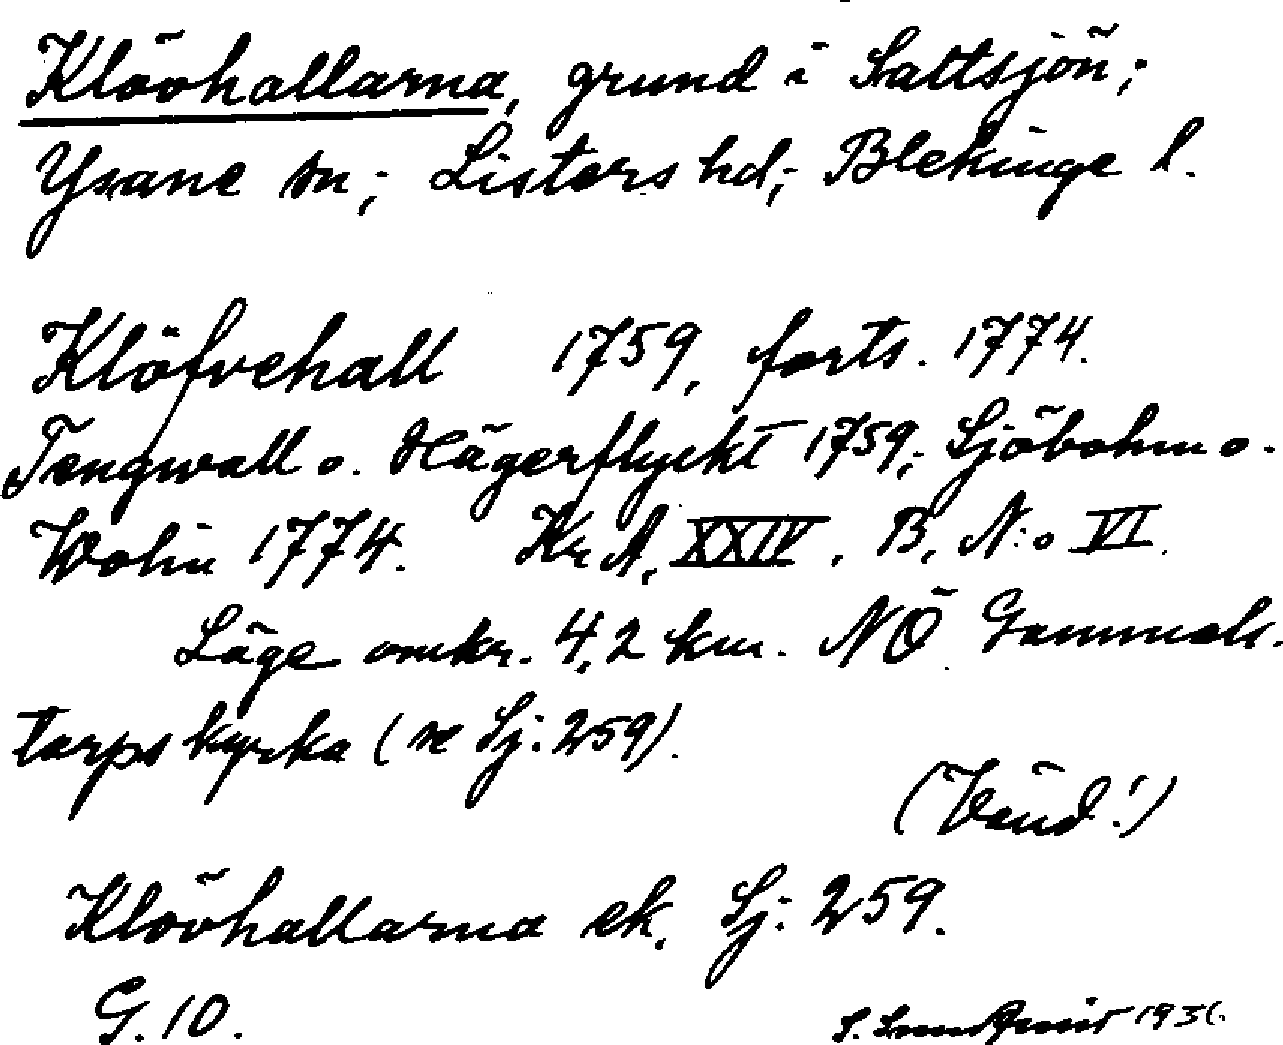 Klövhallarna, grund i Saltsjön;
Ysane sn; Listers hd; Blekinge l.
Klöfvehall 1759, forts. 1774.
Tengwall o. Hägerflyckt 1759; Sjöbohm o.
Wolin 1774. Kr A, XXIV, B, N:o VI.
Läge omkr. 4,2 km. NÖ Gammals-
torps kyrka (se Sj: 259).
(Vänd!)
Klövhallarna ek. Sj: 259.
G. 10.
S.